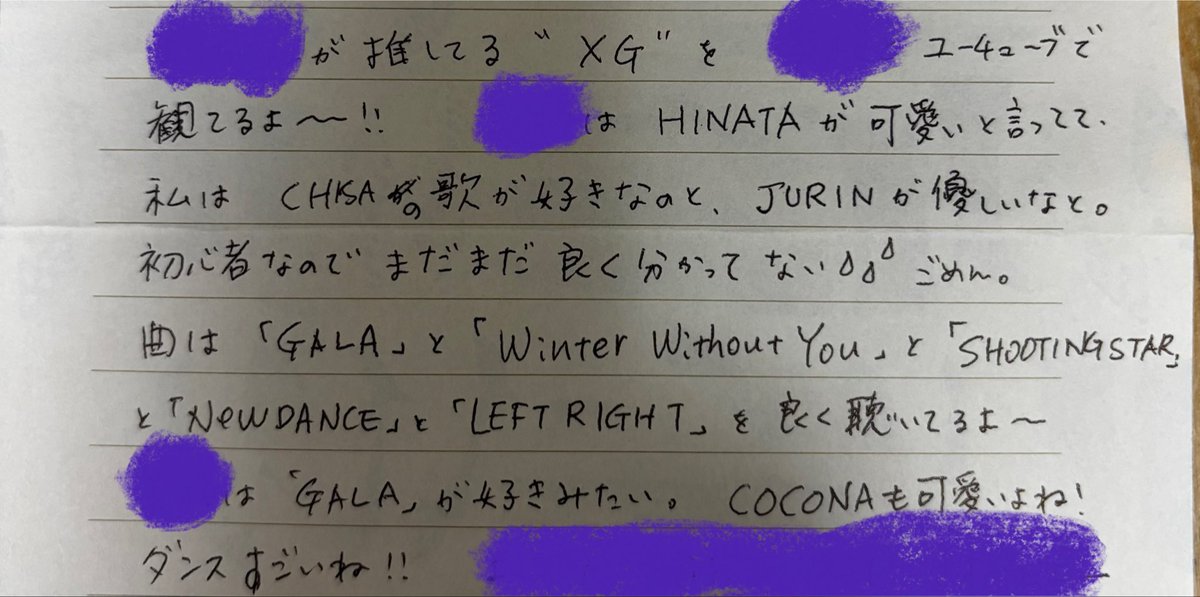 が推してる"XG"を ユーチューブで
観てるよ〜!! は HINATAが可愛いと言ってて、
私は CHISAの歌が好きなのと、JURINが優しいなと。
初心者なのでまだまだ良く分かってない ごめん。
曲は「GALA」と「Winter Without You」と「SHOOTINGSTAR」
と「NeWDANCE」と「LEFT RIGHT」を良く聴いてるよ〜
は「GALA」が好きみたい。 COCONAも可愛いよね!
ダンスすごいね!!